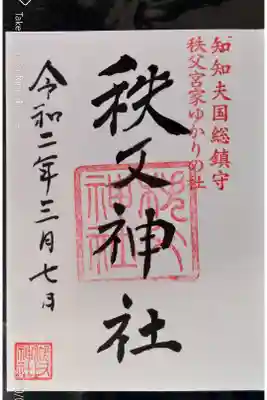 知知夫国総鎮守
秩父宮家ゆかりの社
秩父神社
秩父神社
令和二年三月七日
Take